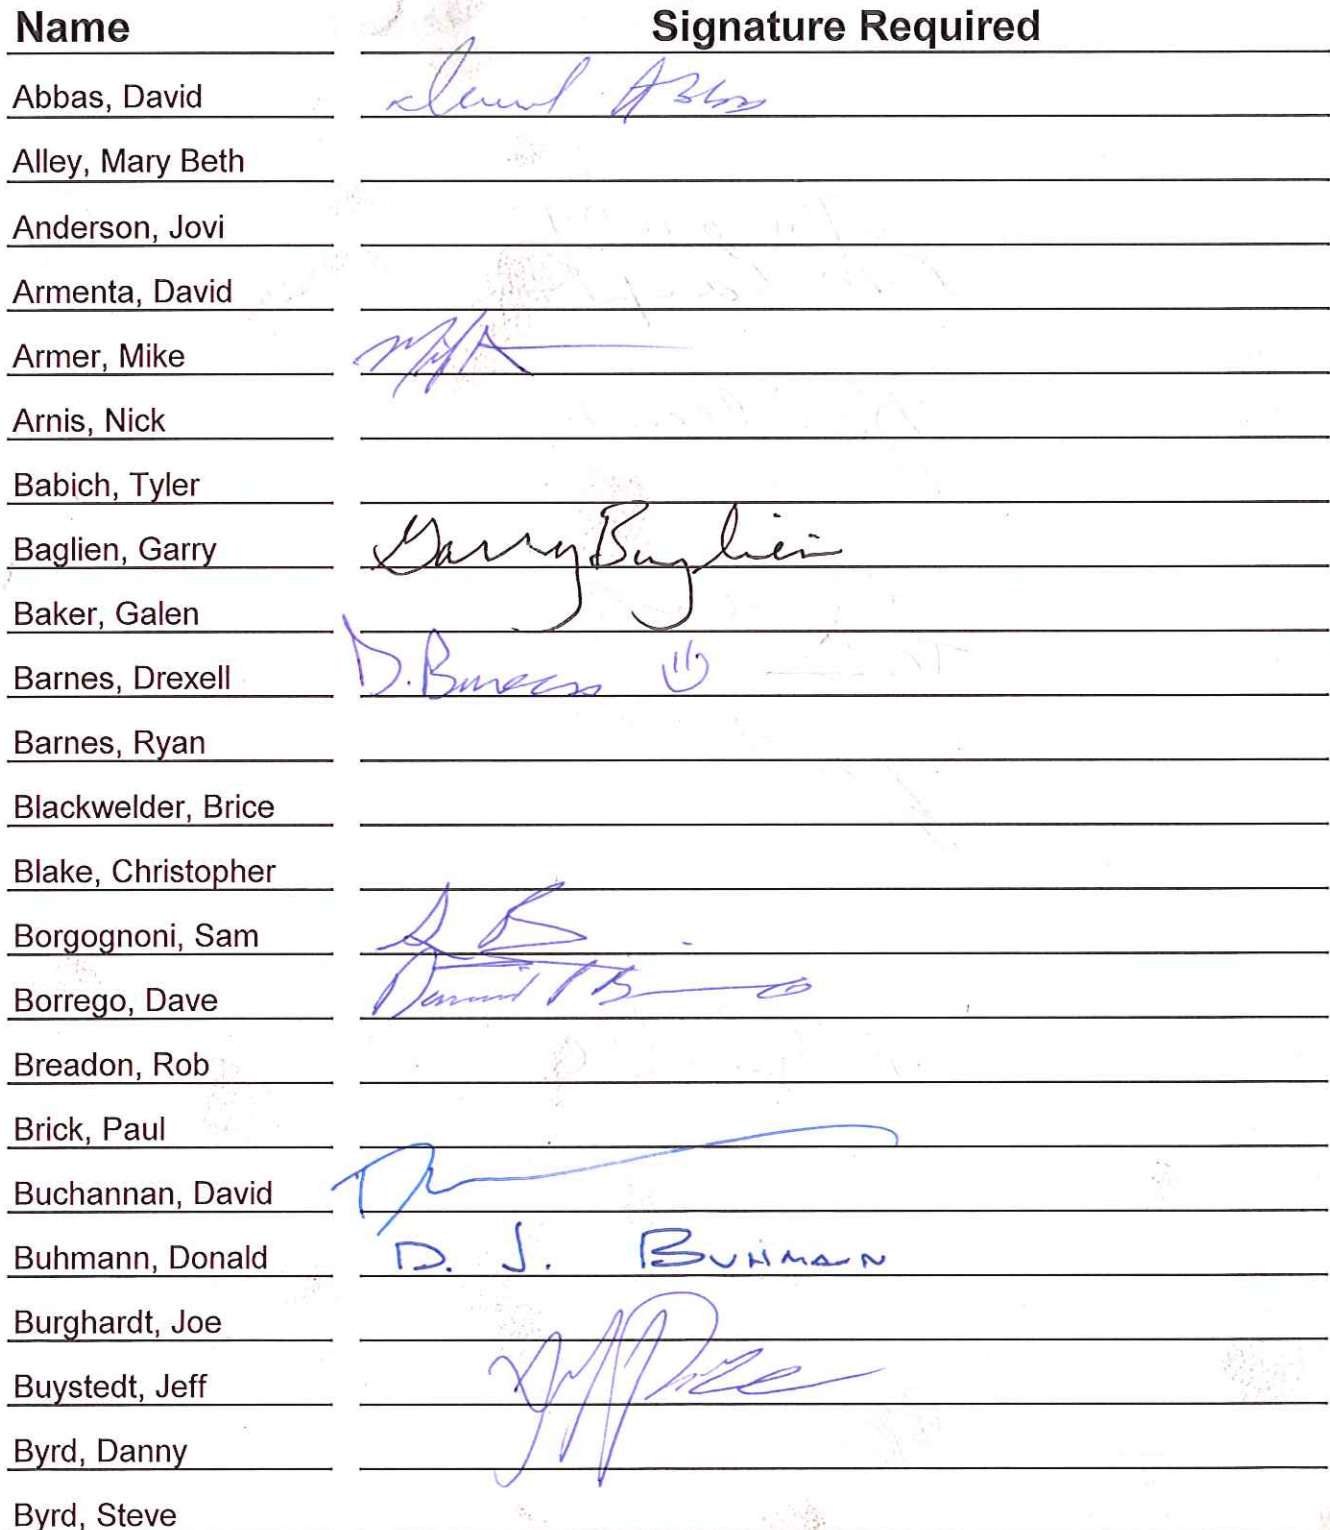 Name Signature Required
Abbas, David David Abbas
Alley, Mary Beth
Anderson, Jovi
Armenta, David
Armer, Mike
Arnis, Nick
Babich, Tyler
Baglien, Garry Garry Baglien
Baker, Galen
Barnes, Drexell D. Barnes
Barnes, Ryan
Blackwelder, Brice
Blake, Christopher
Borgognoni, Sam
Borrego, Dave
Breadon, Rob
Brick, Paul
Buchannan, David
Buhmann, Donald D. J. BUHMANN
Burghardt, Joe
Buystedt, Jeff
Byrd, Danny
Byrd, Steve